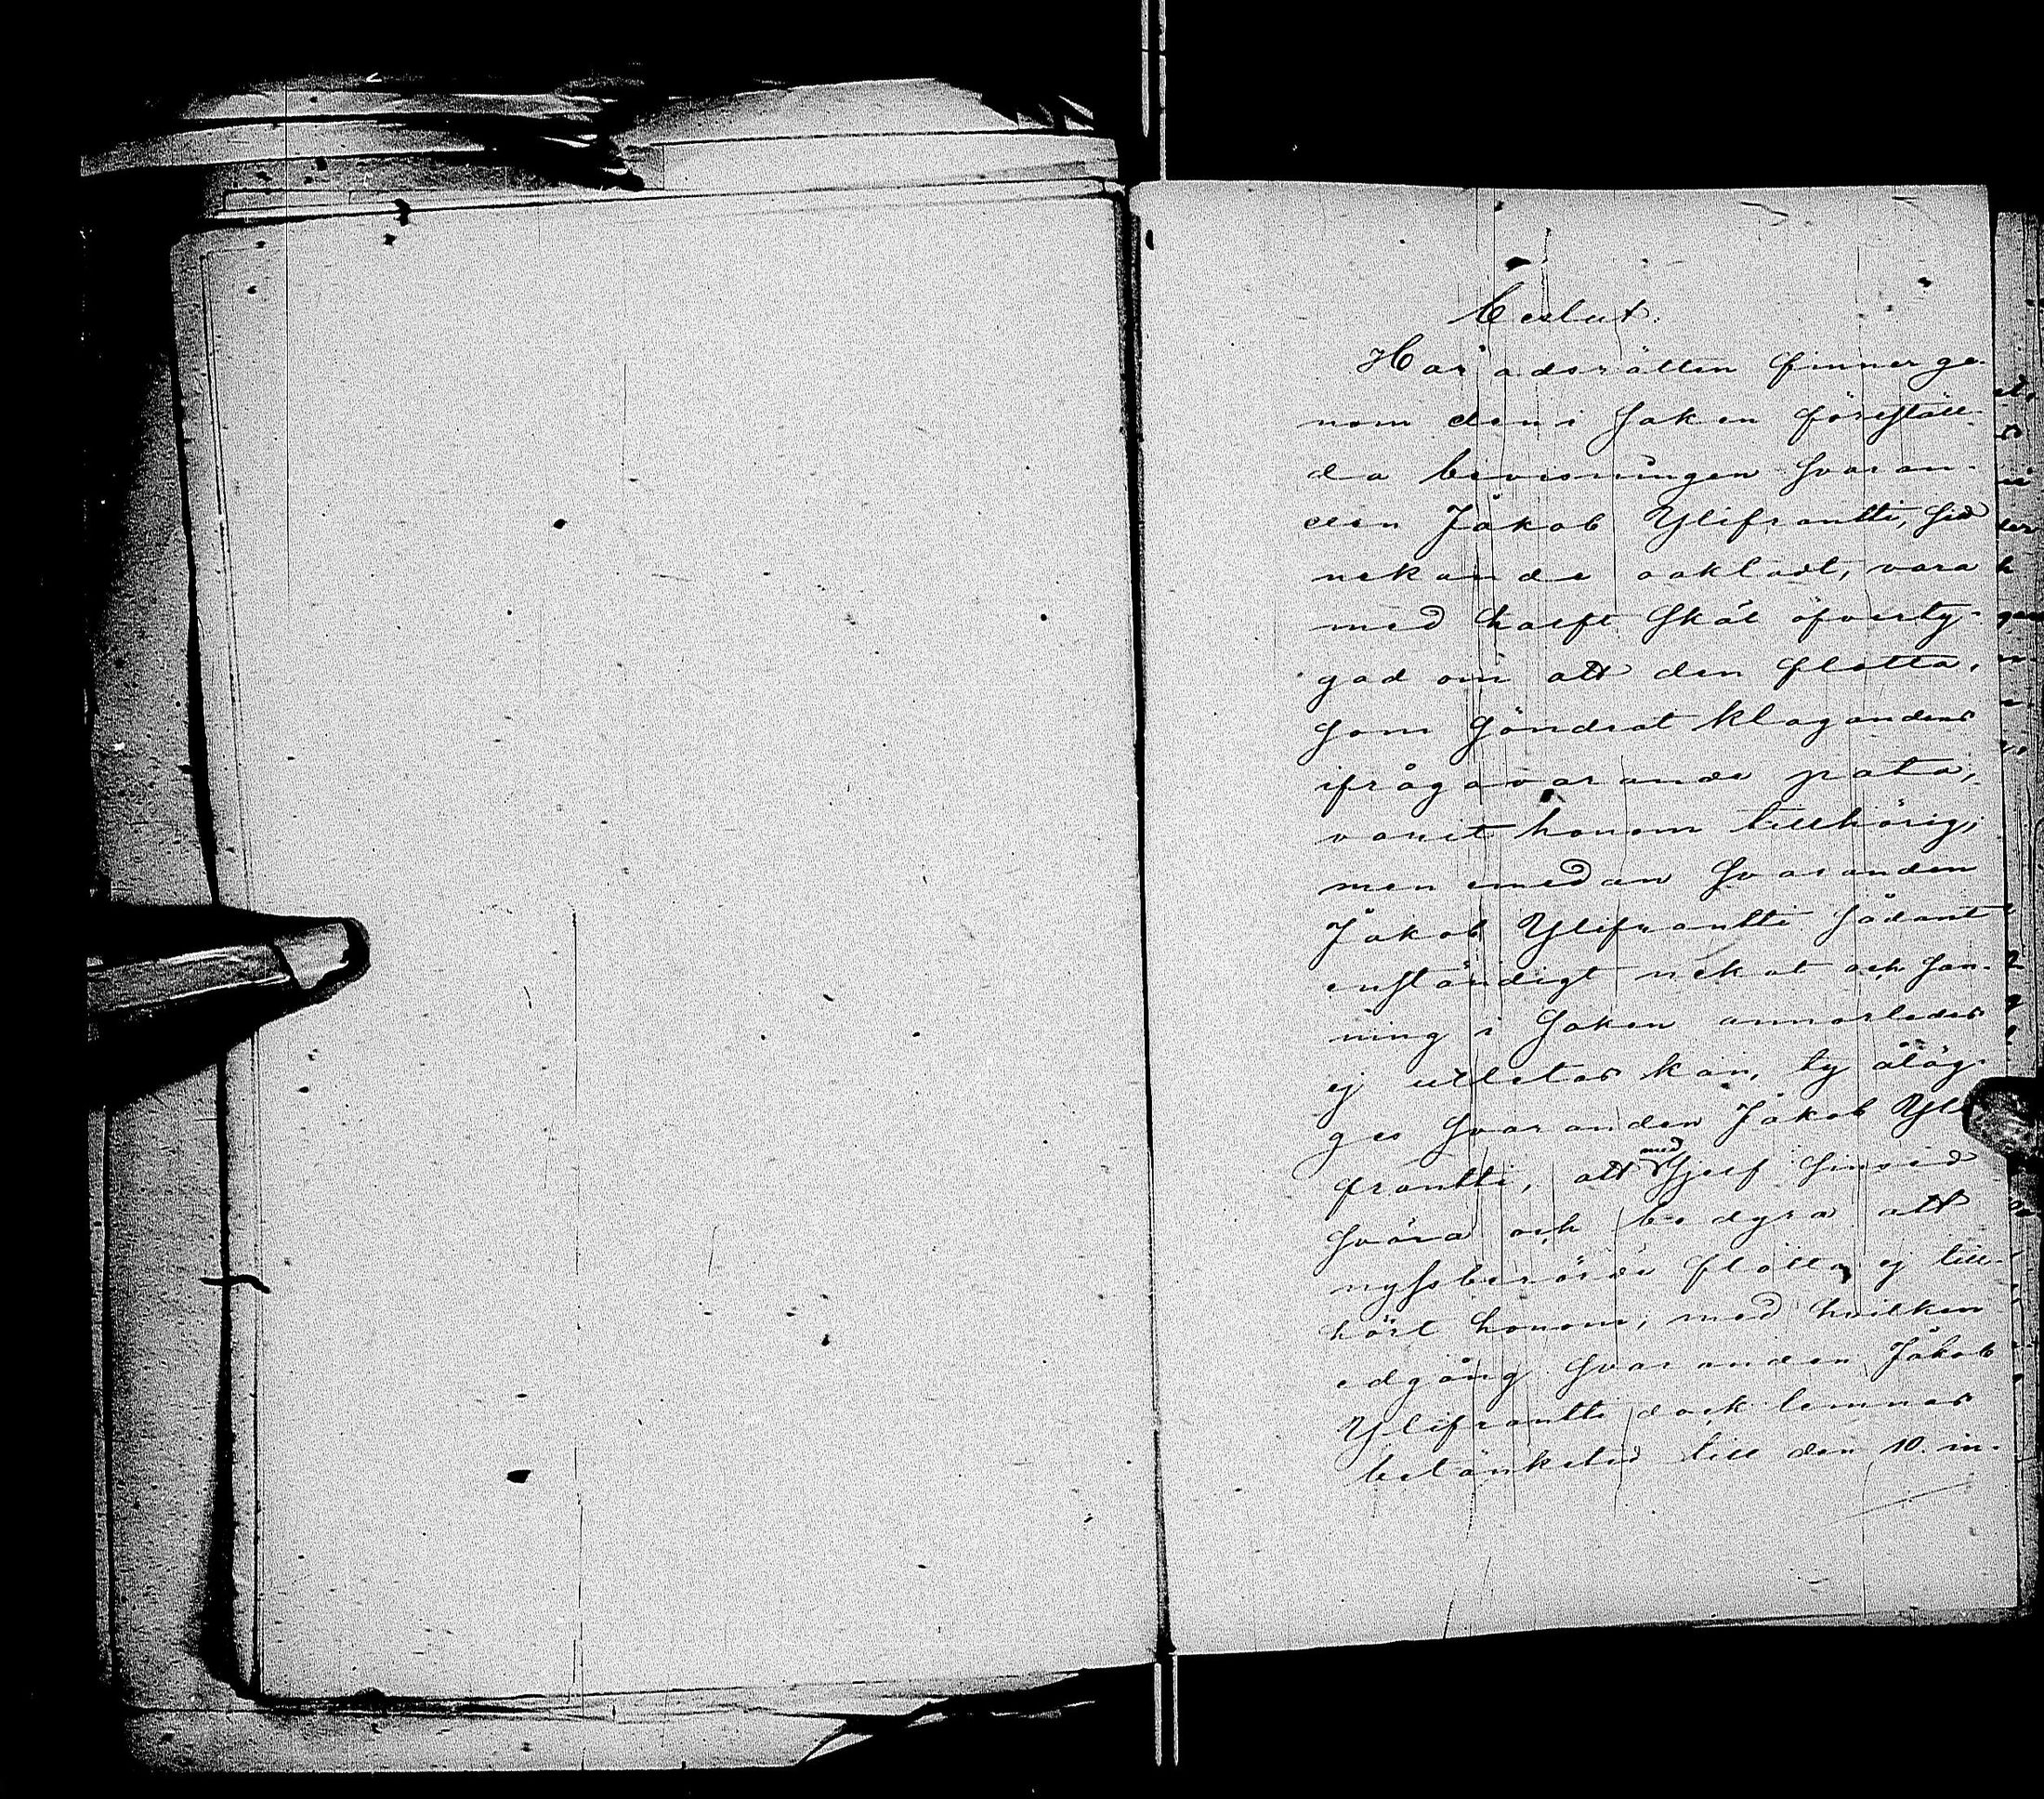 Beslut.
Häradsrätten finner ge-
nom den i saken föreställ-
da bevisningen svaran-
den Jakob Ylifrantti, sed
nekande oaktadt, vara
med half skäl öfverty-
gad om att den flotta,
som söndrat klagandens
ifrågavarande pata,
varit honom tillhörig;
men emedan svaranden
Jakob Ylifrantti sådant
enständigt nekat och san-
ning i saken annorledes
ej utletas kan, ty åläg-
ges svaranden Jakob Yli
frantti, att med sjelf sins ed
svära och bedyra att
nyssberörde flotta ej till-
hört honom; med hvilken
edgång svaranden Jakob
Ylifrantti dock lemnas
betänketid till den 10. in-